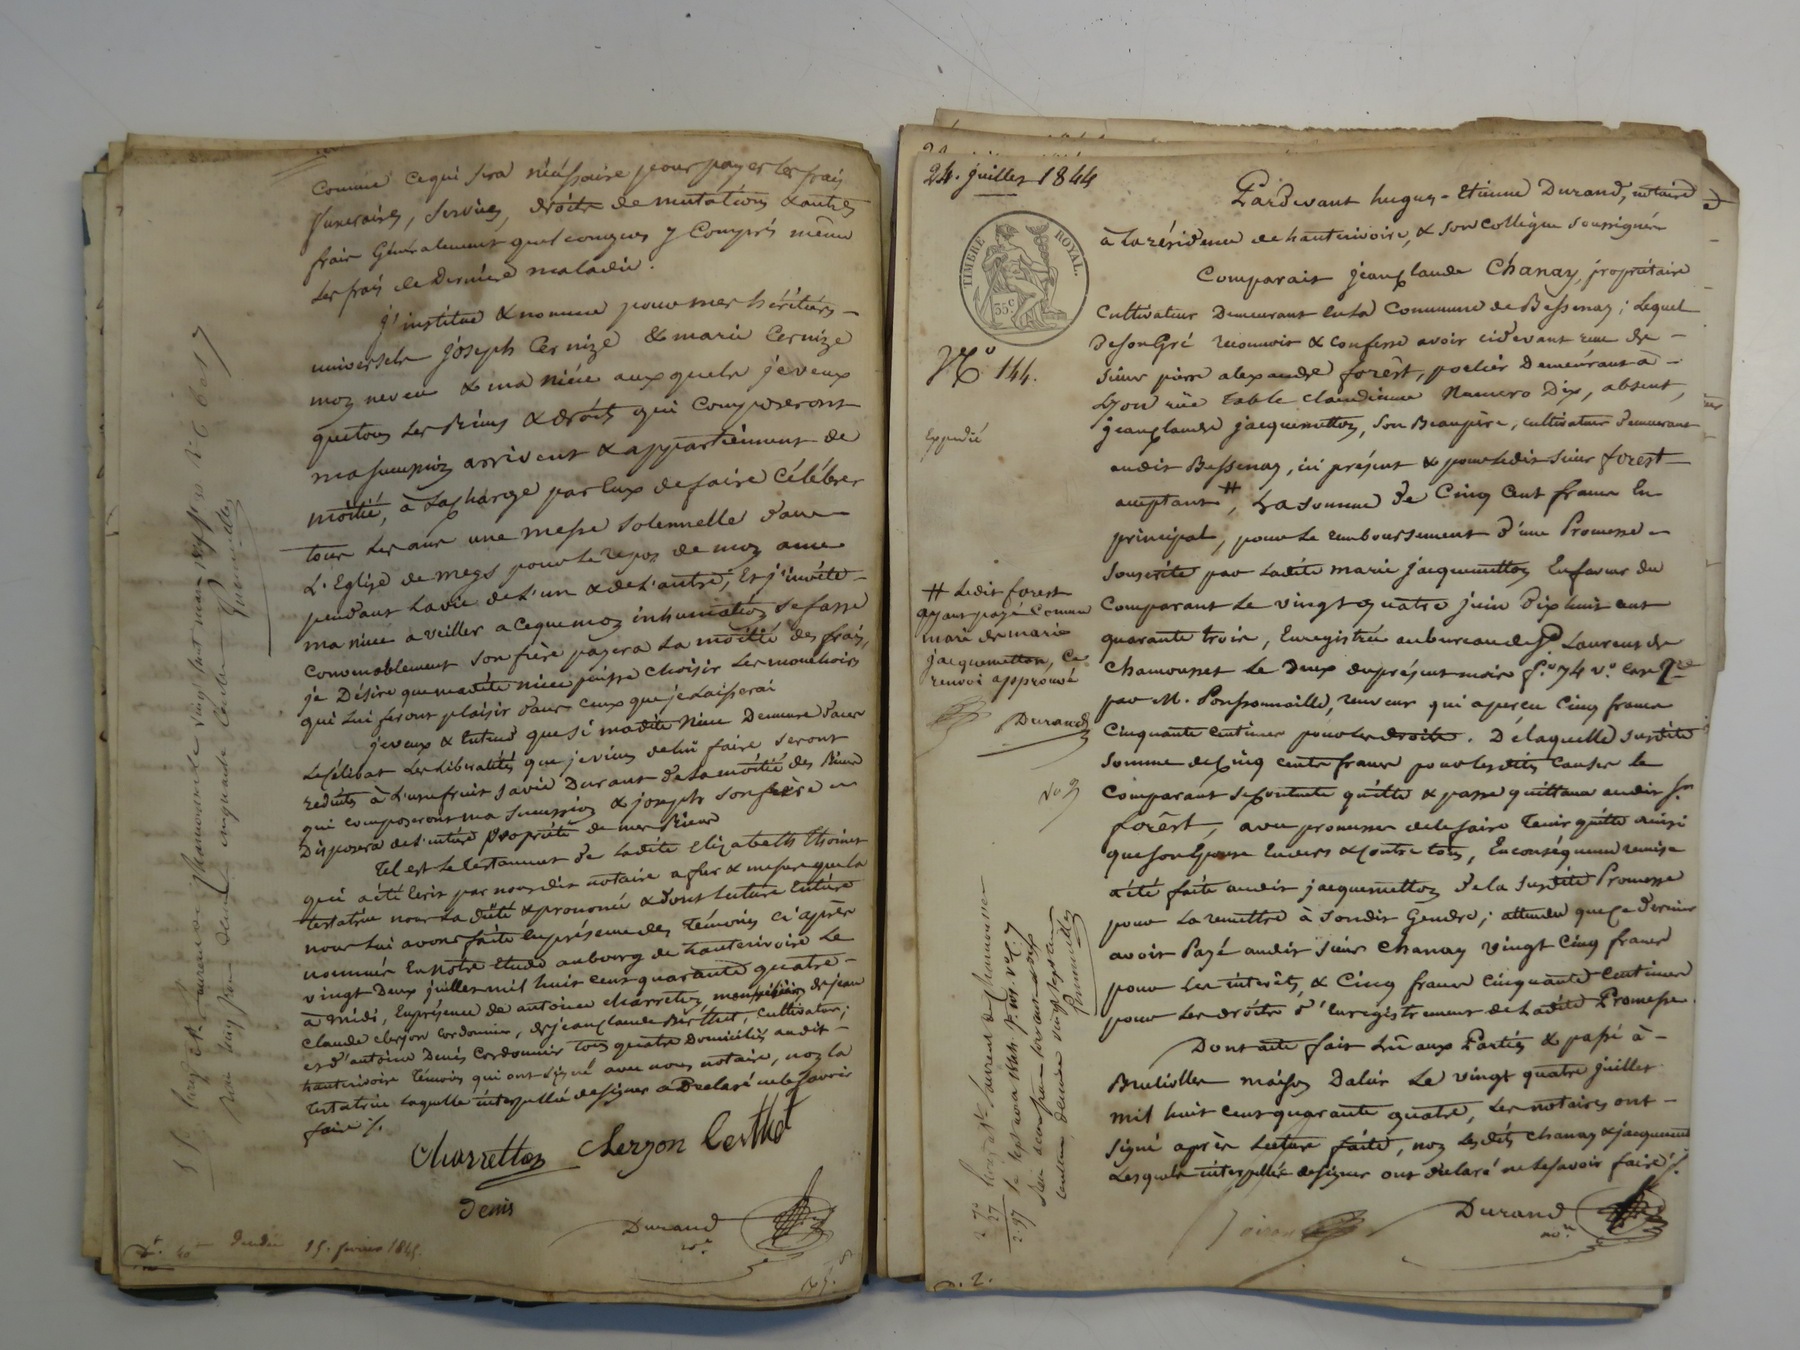 Comme ce qui sera nécessaire pour payer les frais
funeraires, services, droits de mutations & autres
frais Généralement quelconques y Compris même
les frais de derniere maladie.
j'institue & nomme pour mes héritiers
universels joseph Cernize & marie Cernize
mon neveu & ma nièce auxquels je veux
que tous les Biens & droits qui composeront
ma succession arrivent & appartiennent de
moitié, à la charge par eux de faire célébrer
tous les ans une messe solennelle dans
L'Eglise de meys pour le repos de mon ame
pendant la vie de l'un & de l'autre, Et j'invite
ma nièce a veiller a ce que mon inhumation se fasse
convenablement son frère payera la moitié des frais,
je Désire que madite nièce puisse choisir les mouchoirs
qui lui feront plaisir dans ceux que je laisserai
je veux & entend que si madite nièce Demeure dans
le célibat les libéralités que je viens de lui faire seront
reduites à l'usufruit sa vie Durant de la moitié des Biens
qui composeront ma succession & joseph son frère
Disposera de l'entière propriété de mes Biens
Tel est le testament de ladite Elizabeth Thoinet
qui a été Ecrit par nous dit notaire a fur & mesure que la
testatrice nous l'a dicté & prononcé & dont lecture Entière
nous lui avons faite en présence des témoins ci après
nommés En notre Etude au bourg de hauterivoire Le
vingt Deux juillet mil huit cent quarante quatre
à midi, En présence de antoine charreton, de jean
Claude cherzon Cordonnier, de jean claude Berthet, Cultivateur,
et d'antoine Denis Cordonnier tous quatre Domiciliés audit
hauterivoire témoins qui ont signé avec nous notaire, non la
testatrice laquelle interpellée de signer a Declaré ne le savoir
faire /.
Charretton Cherzon berthet
Denis
Durand
15. fevrier 1845.
24. juillet 1844
TIMBRE ROYAL.
35 c
No 144.
Expedié
Pardevant hugues-Etienne Durand, notaire
à la résidence de hauterivoire, & son Collègue soussignés
Comparait jean claude Chanay, propriétaire
Cultivateur Demeurant en la Commune de Bessenay; lequel
De son Gré reconnoit & confesse avoir cidevant reçu de
sieur pierre alexandre forêst, poelier Demeurant à
Lyon rue Table claudienne Numero Dix, absent,
jean claude jacquemetton, son Beaupère, cultivateur demeurant
audit Bessenay, ici présent & pour ledit sieur forest
acceptant #, La somme de Cinq Cent francs En
principal, pour le remboursement d'une Promesse
souscrite par ladite marie jacquemetton En faveur du
Comparant le vingt quatre juin dix huit cent
quarante trois, Enregistrée au bureau de St Laurent de
Chamousset Le Deux du présent mois f.o 74 v.o
par M. Ponssonnaille, receveur qui a perçu Cinq francs
Cinquante centimes pour les droits. De laquelle susdite
somme de Cinq cents francs pour lesdites Causes le
Comparant se contente quitte & passe quittance audit Sr.
forêst, avec promesse de le faire tenir quitte ainsi
que son Epouse Envers & contre tous, En conséquence remise
a été faite audit jacquemetton de la susdite Promesse
pour la remettre à sondit Gendre; attendu que ce dernier
avoit Payé audit sieur Chanay vingt cinq francs
pour les intérêts, & Cinq francs Cinquante Centimes
pour les droits d'Enregistrement de ladite Promesse.
Dont acte fait Lu aux Parties & passé à
Brullioles maison Daloir Le vingt quatre juillet
mil huit cent quarante quatre, Les notaires ont
signé après Lecture faite, non Lesdits Chanay & jacquemetton
Lesquels interpellés de signer ont déclaré ne le savoir faire /.
Durand
# Ledit forest
ayant payé Comme
mari de marie
jacquemetton, Ce
renvoi approuvé
Durand